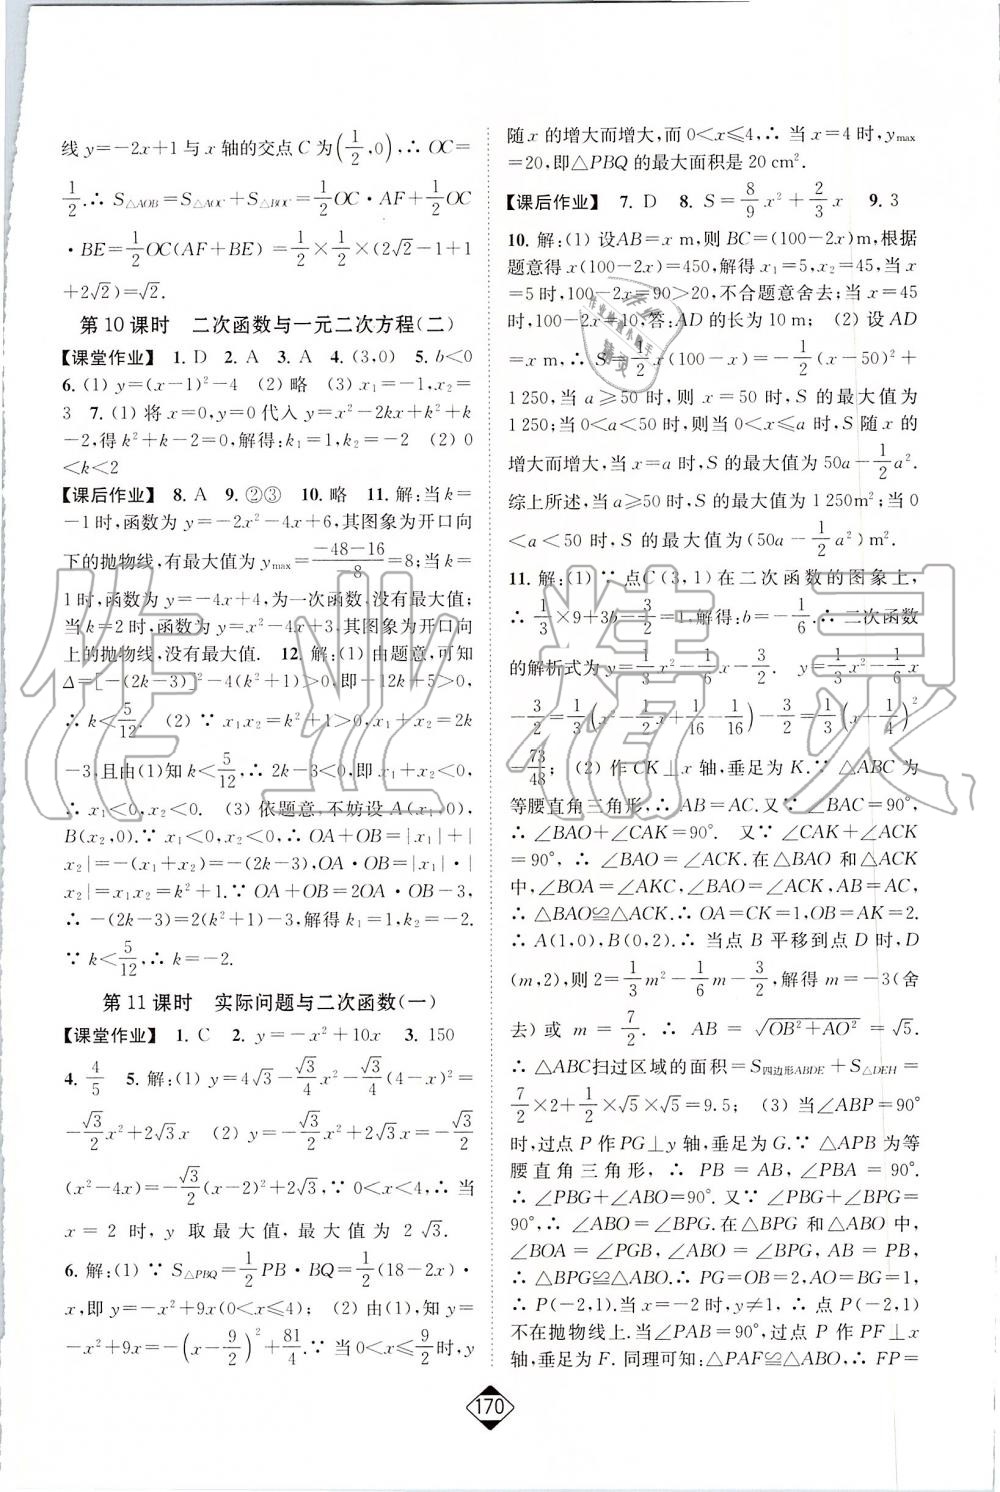 线 y=-2x+1 与 x 轴的交点 C 为(1/2,0),∴ OC=
1/2.∴ S△AOB=S△AOC+S△BOC=1/2OC·AF+1/2OC
·BE=1/2OC(AF+BE)=1/2×1/2×(2√2-1+1
+2√2)=√2.
第 10 课时 二次函数与一元二次方程(二)
【课堂作业】 1. D 2. A 3. A 4. (3,0) 5. b<0
6. (1) y=(x-1)²-4 (2) 略 (3) x₁=-1,x₂=
3 7. (1) 将 x=0,y=0 代入 y=x²-2kx+k²+k
-2,得 k²+k-2=0,解得:k₁=1,k₂=-2 (2) 0
<k<2
【课后作业】 8. A 9. ②③ 10. 略 11. 解:当 k=
-1 时,函数为 y=-2x²-4x+6,其图象为开口向
下的抛物线,有最大值为 ymax=(-48-16)/8=8;当 k=
1 时,函数为 y=-4x+4,为一次函数,没有最大值;
当 k=2 时,函数为 y=x²-4x+3,其图象为开口向
上的抛物线,没有最大值. 12. 解:(1) 由题意,可知
Δ=[-(2k-3)]²-4(k²+1)>0,即-12k+5>0,
∴ k<5/12. (2) ∵ x₁x₂=k²+1>0,x₁+x₂=2k
-3,且由(1)知 k<5/12,∴ 2k-3<0,即 x₁+x₂<0,
∴ x₁<0,x₂<0. (3) 依题意,不妨设 A(x₁,0),
B(x₂,0).∵ x₁<0,x₂<0,∴ OA+OB=|x₁|+|
x₂|=-(x₁+x₂)=-(2k-3),OA·OB=|x₁|·|
x₂|=x₁x₂=k²+1.∵ OA+OB=2OA·OB-3,
∴ -(2k-3)=2(k²+1)-3,解得 k₁=1,k₂=-2.
∵ k<5/12,∴ k=-2.
第 11 课时 实际问题与二次函数(一)
【课堂作业】 1. C 2. y=-x²+10x 3. 150
4. 4/5 5. 解:(1) y=4√3-√3/4x²-√3/4(4-x)²=
-√3/2x²+2√3x (2) y=-√3/2x²+2√3x=-√3/2
(x²-4x)=-√3/2(x-2)²+2√3,∵ 0<x<4,∴ 当
x=2 时, y 取最大值,最大值为 2√3.
6. 解:(1) ∵ S△PBQ=1/2PB·BQ=1/2(18-2x)·
x,即 y=-x²+9x(0<x≤4); (2) 由(1),知 y=
-x²+9x=-(x-9/2)²+81/4.∵ 当 0<x≤9/2时,y
随 x 的增大而增大,而 0<x≤4,∴ 当 x=4 时,ymax
=20,即△PBQ 的最大面积是 20 cm².
【课后作业】 7. D 8. S=8/9x²+2/3x 9. 3
10. 解:(1) 设AB=x m,则 BC=(100-2x)m,根据
题意得 x(100-2x)=450,解得 x₁=5,x₂=45,当 x
=5 时,100-2x=90>20,不合题意舍去;当 x=45
时,100-2x=10,答:AD 的长为 10 m; (2) 设 AD
=x m,∴ S=1/2x(100-x)=-1/2(x-50)²+
1 250,当 a≥50 时,则 x=50 时,S 的最大值为
1 250;当 0<a<50 时,则当 0<x≤a 时,S 随 x 的
增大而增大,当 x=a 时,S 的最大值为 50a-1/2a².
综上所述,当 a≥50 时,S 的最大值为 1 250m²;当 0
<a<50 时,S 的最大值为(50a-1/2a²)m².
11. 解:(1) ∵ 点C(3,1)在二次函数的图象上,
∴ 1/3×9+3b-3/2=1,解得:b=-1/6.∴ 二次函数
的解析式为 y=1/3x²-1/6x-3/2. y=1/3x²-1/6x
-3/2=1/3(x²-1/2x+1/16-1/16)-3/2=1/3(x-1/4)²
-73/48; (2) 作 CK⊥x 轴,垂足为 K.∵ △ABC 为
等腰直角三角形,∴ AB=AC.又∵ ∠BAC=90°,
∴ ∠BAO+∠CAK=90°. 又∵ ∠CAK+∠ACK
=90°,∴ ∠BAO=∠ACK.在△BAO 和△ACK
中,∠BOA=∠AKC,∠BAO=∠ACK,AB=AC,
∴ △BAO≌△ACK.∴ OA=CK=1,OB=AK=2.
∴ A(1,0),B(0,2).∴ 当点 B 平移到点 D 时,D
(m,2),则 2=1/3m²-1/6m-3/2,解得 m=-3(舍
去)或 m=7/2.∴ AB=√(OB²+AO²)=√5.
∴ △ABC扫过区域的面积=S四边形ABDE+S△DEH=
7/2×2+1/2×√5×√5=9.5; (3) 当∠ABP=90°
时,过点 P 作 PG⊥y 轴,垂足为 G.∵ △APB 为等
腰直角三角形,∴ PB=AB,∠PBA=90°.
∴ ∠PBG+∠ABO=90°.又∵ ∠PBG+∠BPG=
90°,∴ ∠ABO=∠BPG.在△BPG 和△ABO 中,
∠BOA=∠PGB,∠ABO=∠BPG,AB=PB,
∴ △BPG≌△ABO.∴ PG=OB=2,AO=BG=1,
∴ P(-2,1).当 x=-2 时,y≠1,∴ 点 P(-2,1)
不在抛物线上.当∠PAB=90°,过点 P 作 PF⊥x
轴,垂足为 F. 同理可知:△PAF≌△ABO,∴ FP=
170
作业精灵